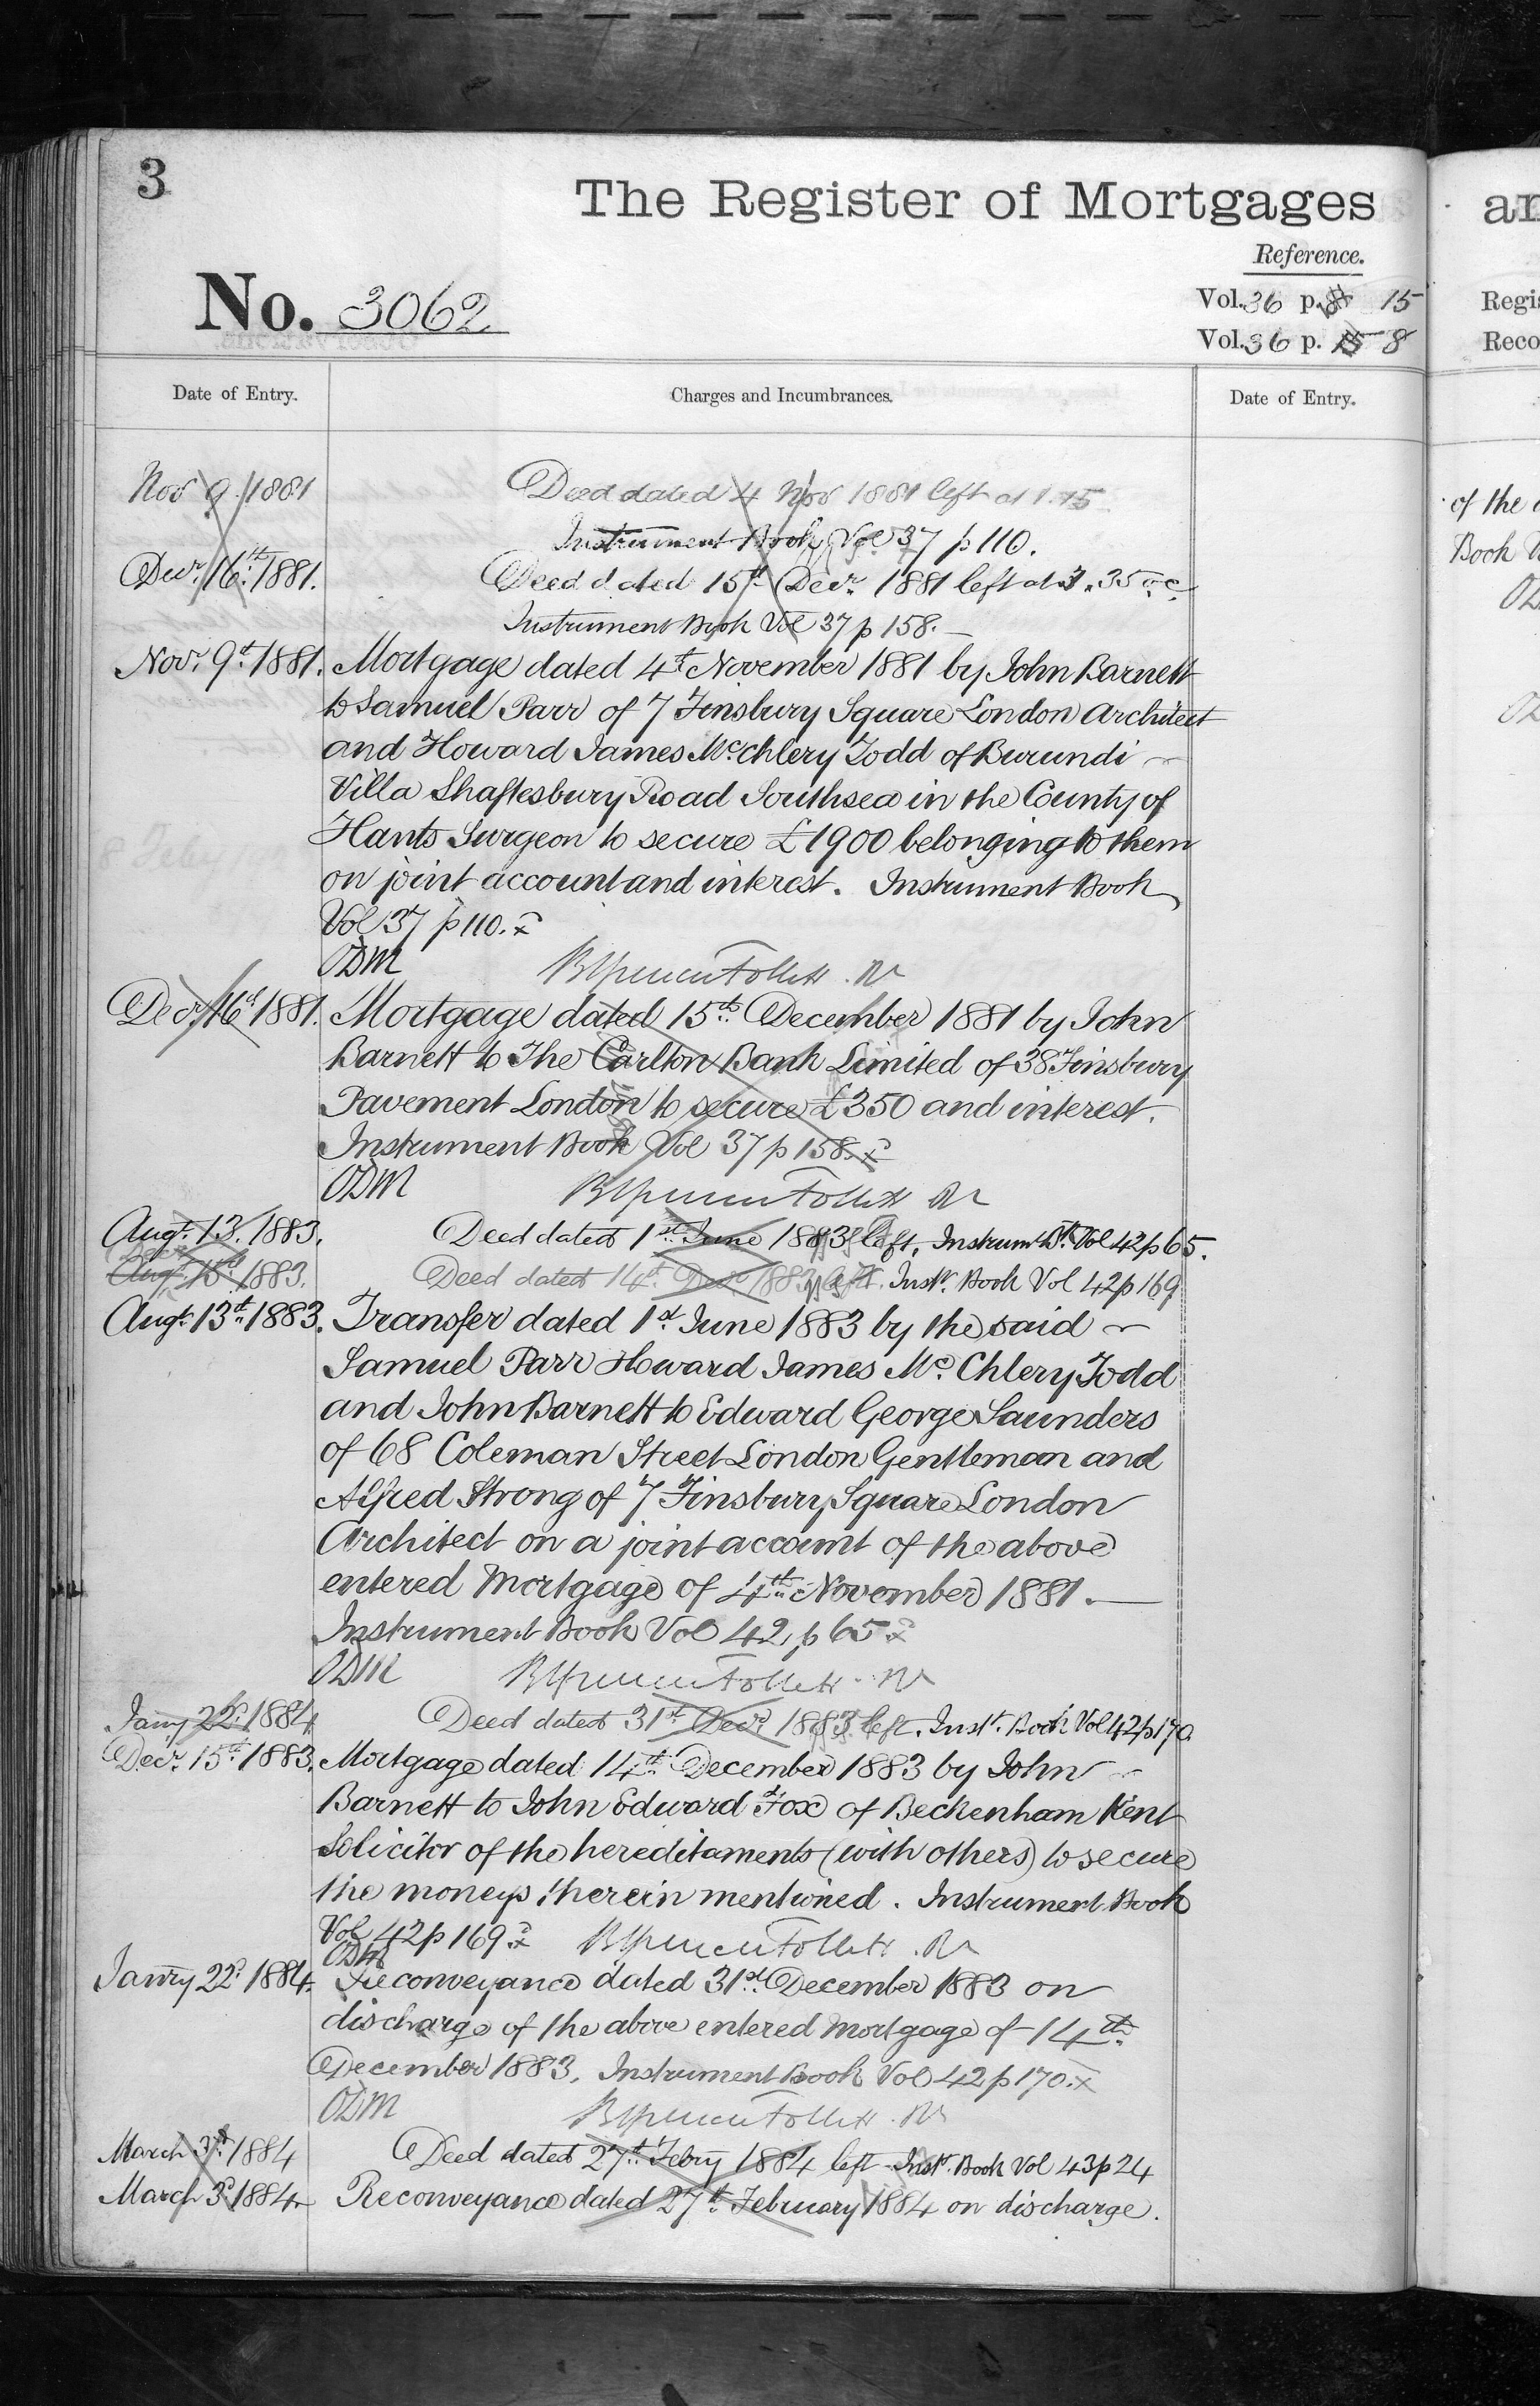 3
The Register of Mortgages
Reference.
No. 3062
Vol. 36 p. 15
Vol. 36 p. 15 8
Date of Entry.
Charges and Incumbrances.
Date of Entry.
Nov 9. 1881 Deed dated 4 Nov 1881 left at 1.45
Instrument Book Vol 37 p 110.
Decr. 16th. 1881. Deed dated 15th Decr. 1881 left at 3.35 oc
Instrument Book Vol 37 p 158.
Novr. 9th 1881. Mortgage dated 4th November 1881 by John Barnett
to Samuel Parr of 7 Finsbury Square London Architect
and Howard James Mc.Chlery Todd of Burundi
Villa Shaftesbury Road Southsea in the County of
Hants Surgeon to secure £1900 belonging to them
on joint account and interest. Instrument Book
Vol 37 p 110. x
ODM
Decr. 16th 1881. Mortgage dated 15th December 1881 by John
Barnett to The Carlton Bank Limited of 38 Finsbury
Pavement London to secure £350 and interest.
Instrument Book Vol 37 p 158. x
ODM
Augt. 13. 1883. Deed dated 1st June 1883 left. Instrumt Bk. Vol 42 p 65.
Decr
Augt. 15th 1883. Deed dated 14th Decr 1883 left. Inst. Book Vol 42 p 169
Augt. 13th 1883. Transfer dated 1st June 1883 by the said
Samuel Parr Howard James Mc. Chlery Todd
and John Barnett to Edward George Saunders
of 68 Coleman Street London Gentleman and
Alfred Strong of 7 Finsbury Square London
Architect on a joint account of the above
entered Mortgage of 4th November 1881.
Instrument Book Vol 42, p 65 x
ODM
Jany 22d. 1884 Deed dated 31st Decr. 1883 left. Inst. Book Vol 42 p 170.
Decr. 15th 1883. Mortgage dated 14th December 1883 by John
Barnett to John Edward Fox of Beckenham Kent
Solicitor of the hereditaments (with others) to secure
the moneys therein mentioned. Instrument Book
Vol 42 p 169. x
ODM
Janry 22d. 1884. Reconveyance dated 31st December 1883 on
discharge of the above entered Mortgage of 14th
December 1883. Instrument Book Vol 42 p 170. x
ODM
March 3d. 1884 Deed dated 27th Febry 1884 left Inst. Book Vol 43 p 24
March 3d 1884 Reconveyance dated 27th February 1884 on discharge.
ar
Regis
Reco
of the
Book